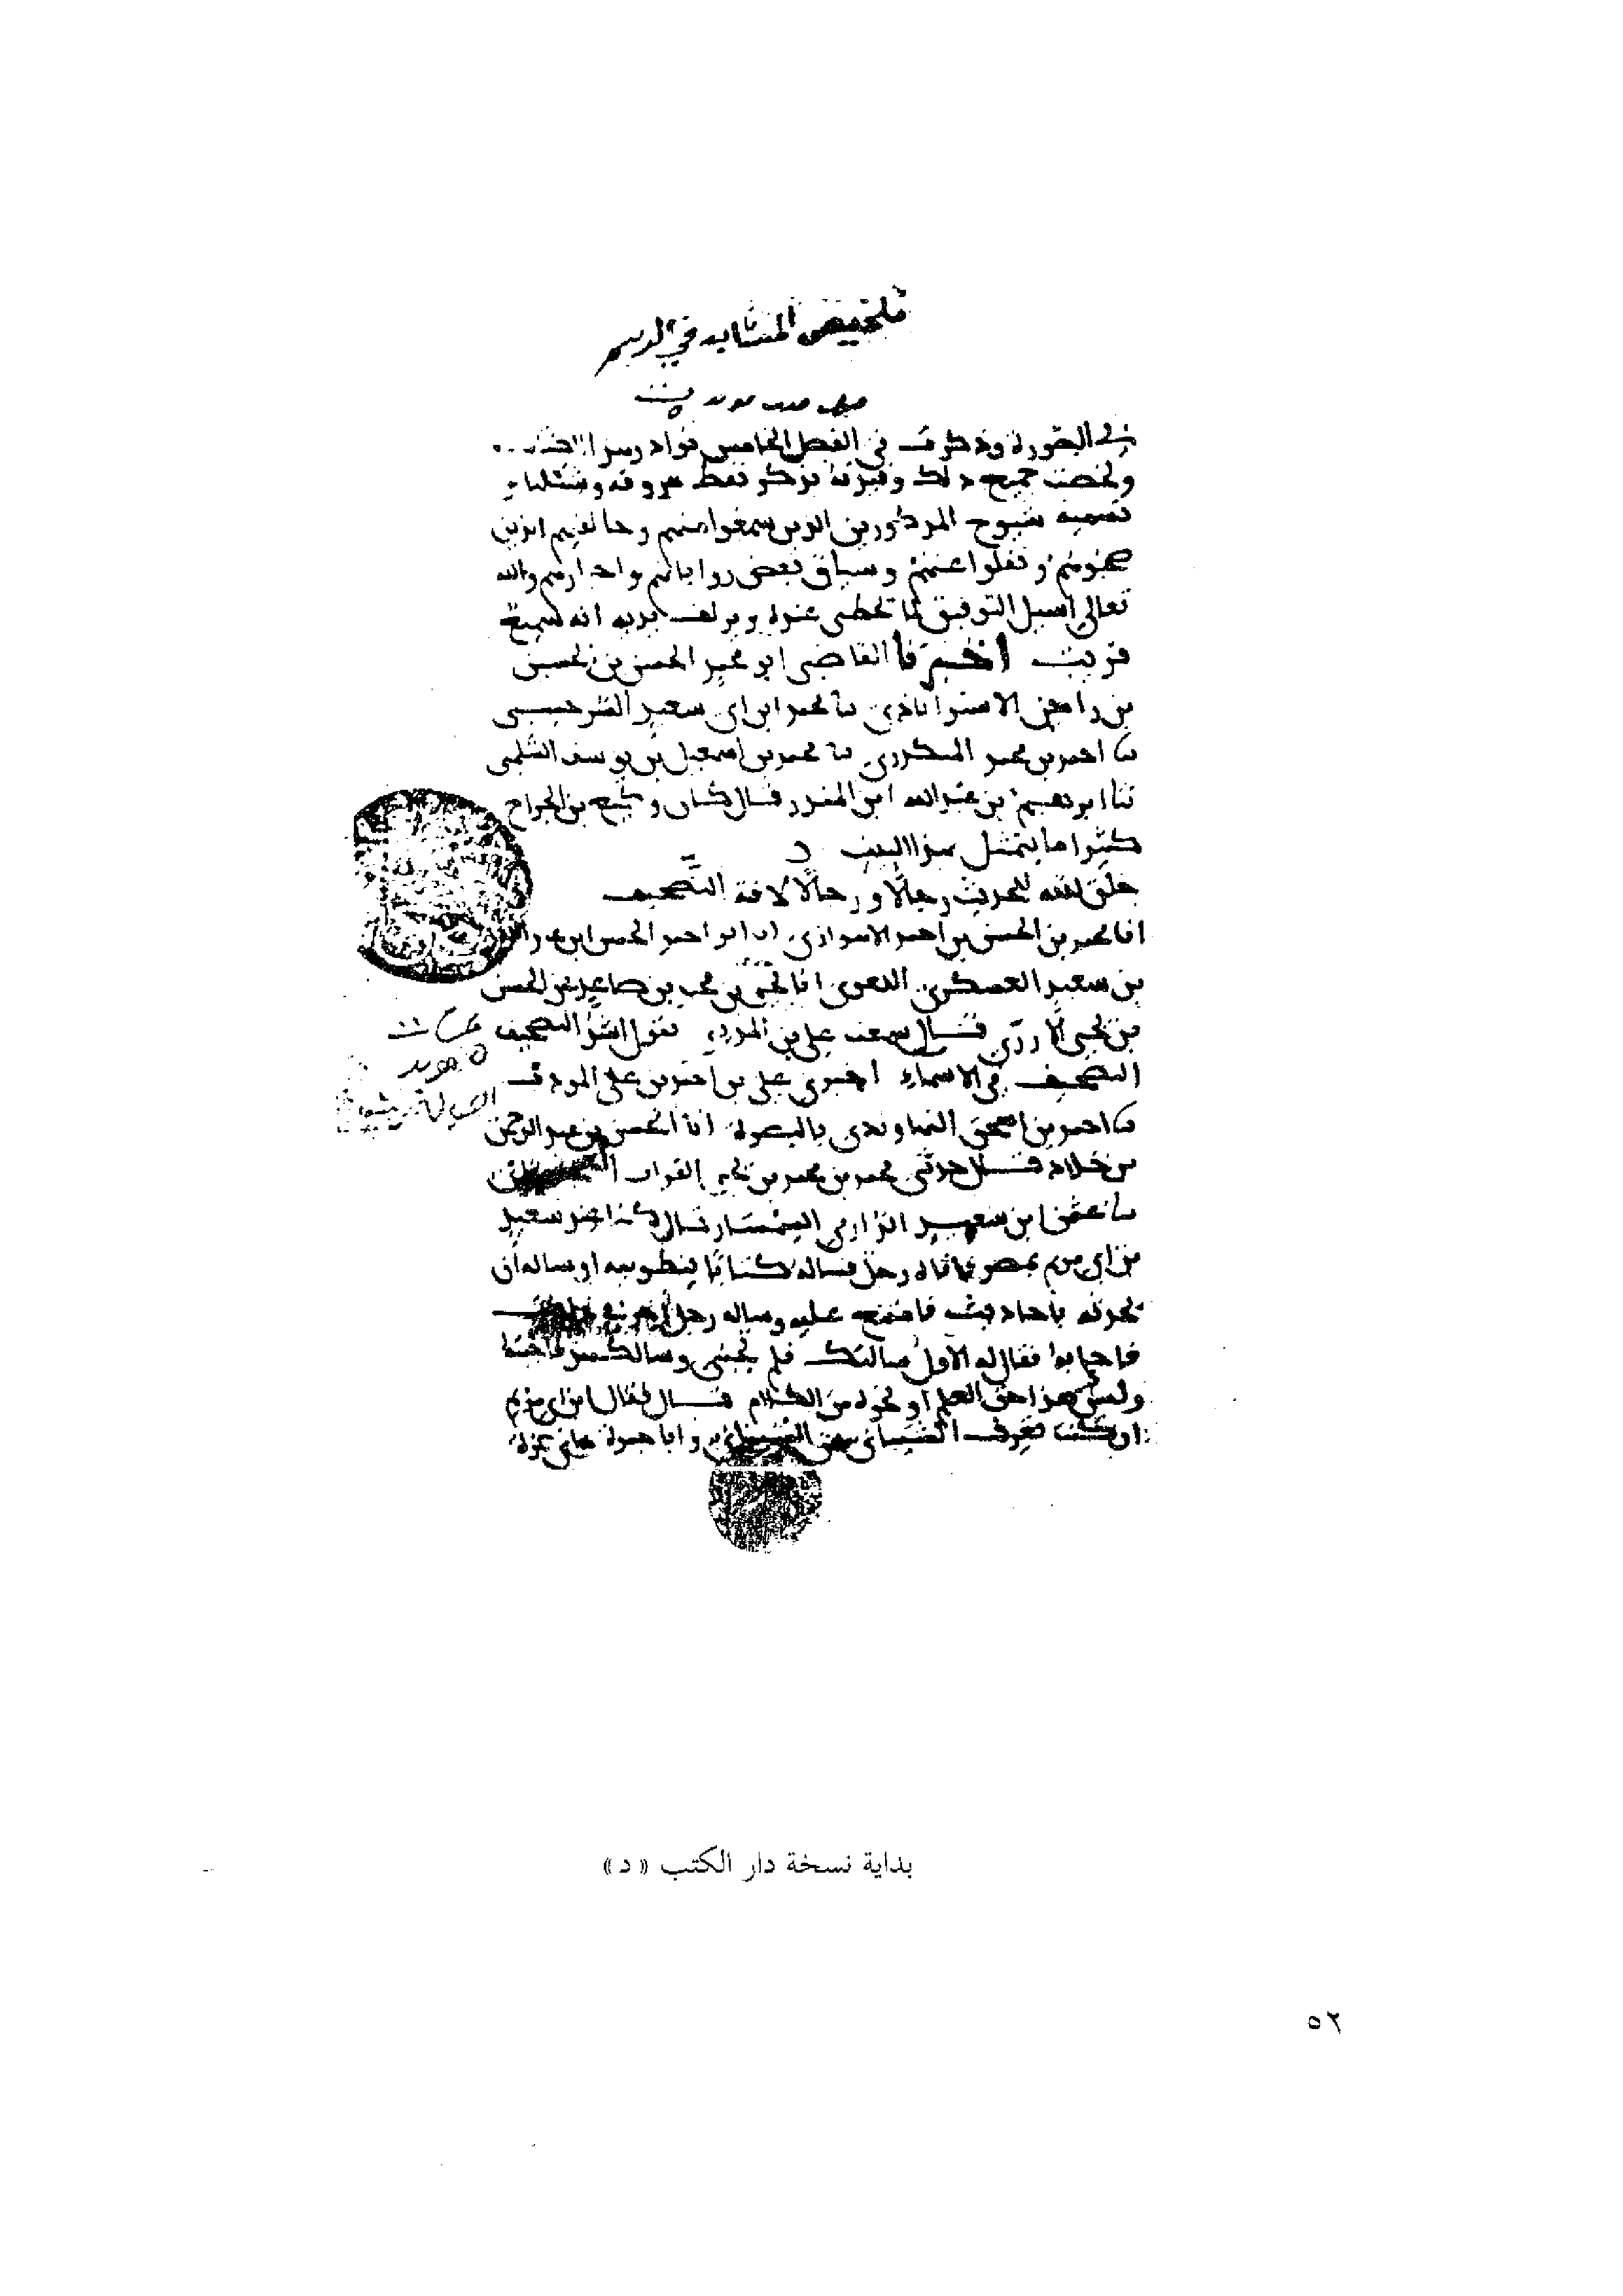 تلخيص المتشابه في الرسم
في الصورة وذكرت في الفصل الخامس نوادر
ولخصت جميع ذلك وقيدته بذكر نقط حروفه وشكلها و
تسمية شيوخ المذكورين الذين سمعوا منهم وخالفيهم الذين
صحبوهم ونقلوا عنهم وسياق بعض رواياتهم واخبارهم والله
تعالى اسل التوفيق لما يحظى عنده ويزلف لديه انه سميع
قريب اخبرنا القاضي ابو محمد الحسن بن الحسين
بن رامين الاستراباذي نا محمد ابن ابي سعيد السرخسي
نا احمد بن محمد المنكدري نا محمد بن اسمعيل بن يوسف السلمي
نا ابرهيم بن عبدالله ابن المنذر قال كان وكيع بن الجراح
كثيرا ما يتمثل بهذا البيت
خلق الله للحديث رجالا ورجالا لافة التصحيف
انا محمد بن الحسن بن احمد الاهوازي انا ابو احمد الحسن ابن عبدالله
بن سعيد العسكري اللغوي انا يحيى بن محمد بن صاعد عن الحسن
بن يحيى الارزي قال سمعت علي بن المديني يقول اشد التصحيف
التصحيف في الاسماء اخبرني علي بن احمد بن علي المودب
نا احمد بن اسحق النهاوندي بالبصرة انا الحسن بن عبد الرحمن
بن خلاد قال حدثني محمد بن محمد بن القواب
نا عثمن ابن سعيد الدارمي السمسار قال كنا عند سعيد
بن ابي مريم بمصر فاتاه رجل فساله كتابا ينظر فيه او ساله ان
يحدثه باحاديث فامتنع عليه وساله رجل اخر في ذلك
فاجابه فقال له الاول سالتك فلم تجبني وسالك هذا فاجبته
وليس هذا حق العلم او نحوه من الكلام قال فقال ابن ابي مريم
ان كنت تعرف الشيباني من السيباني وابا جمرة من ابي حمزة
بداية نسخة دار الكتب «د»
٥٢